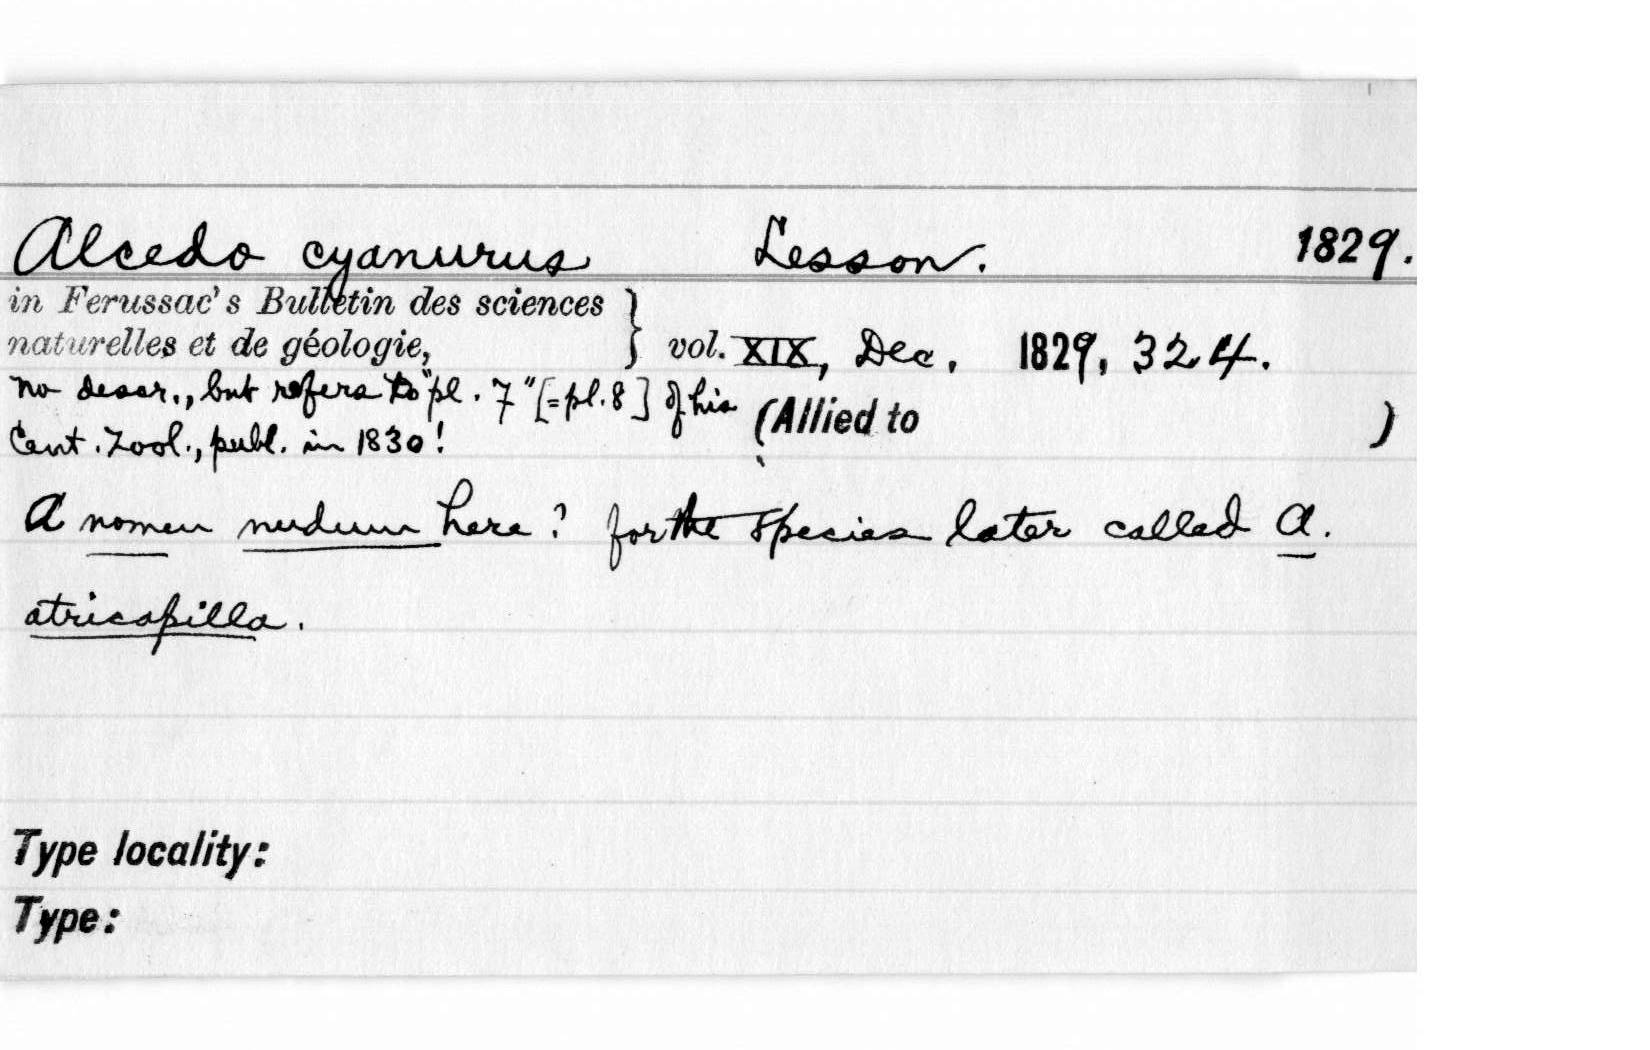 Alcedo cyanurus Lesson. 1829.
in Ferussac's Bulletin des sciences
naturelles et de géologie, } vol. XIX, Dec. 1829, 324.
no descr., but refers to "pl. 7" [=pl. 8] of his
Cent. Zool., publ. in 1830! (Allied to )
A nomen nudum here? for the species later called A.
atricapilla.
Type locality:
Type: